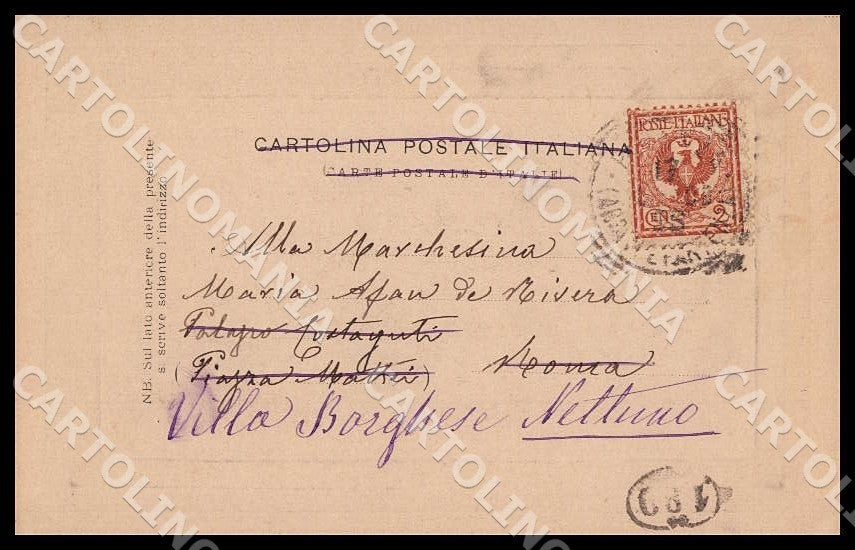 CARTOLINA POSTALE ITALIANA
CARTE POSTALE D'ITALIE
POSTE ITALIANE
CEN. 2
NB. Sul lato anteriore della presente
s. scrive soltanto l'indirizzo
Alla Marchesina
Maria Afan de Rivera
Palazzo Costaguti
(Piazza Mattei) Roma
Villa Borghese Nettuno
CARTOLINOMANIA